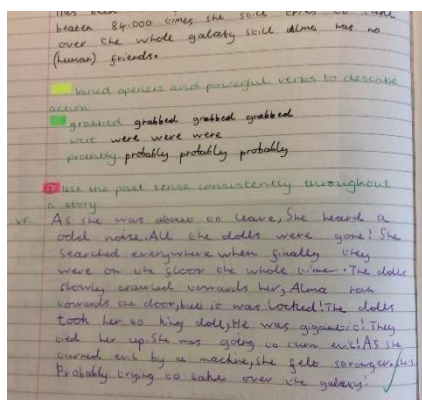 beaten 84.000 times she still tries to take
over the whole galaxy still Alma has no
(human) friends.
Varied openers and powerful verbs to describe
action
grabbed grabbed grabbed grabbed
were were were were
probably probably probably probably
use the past tense consistently throughout
a story.
As she was about to leave, She heard a
odd noise. All the dolls were gone! She
searched everywhere when finally they
were on the floor the whole time. The dolls
slowly crawled towards her, Alma ran
towards the door, but it was locked! The dolls
took her to king doll, He was gigantic! They
tied her up. She was going to turn evil! As she
turned evil by a machine, she felt stronger.
Probably trying to take over the galaxy!